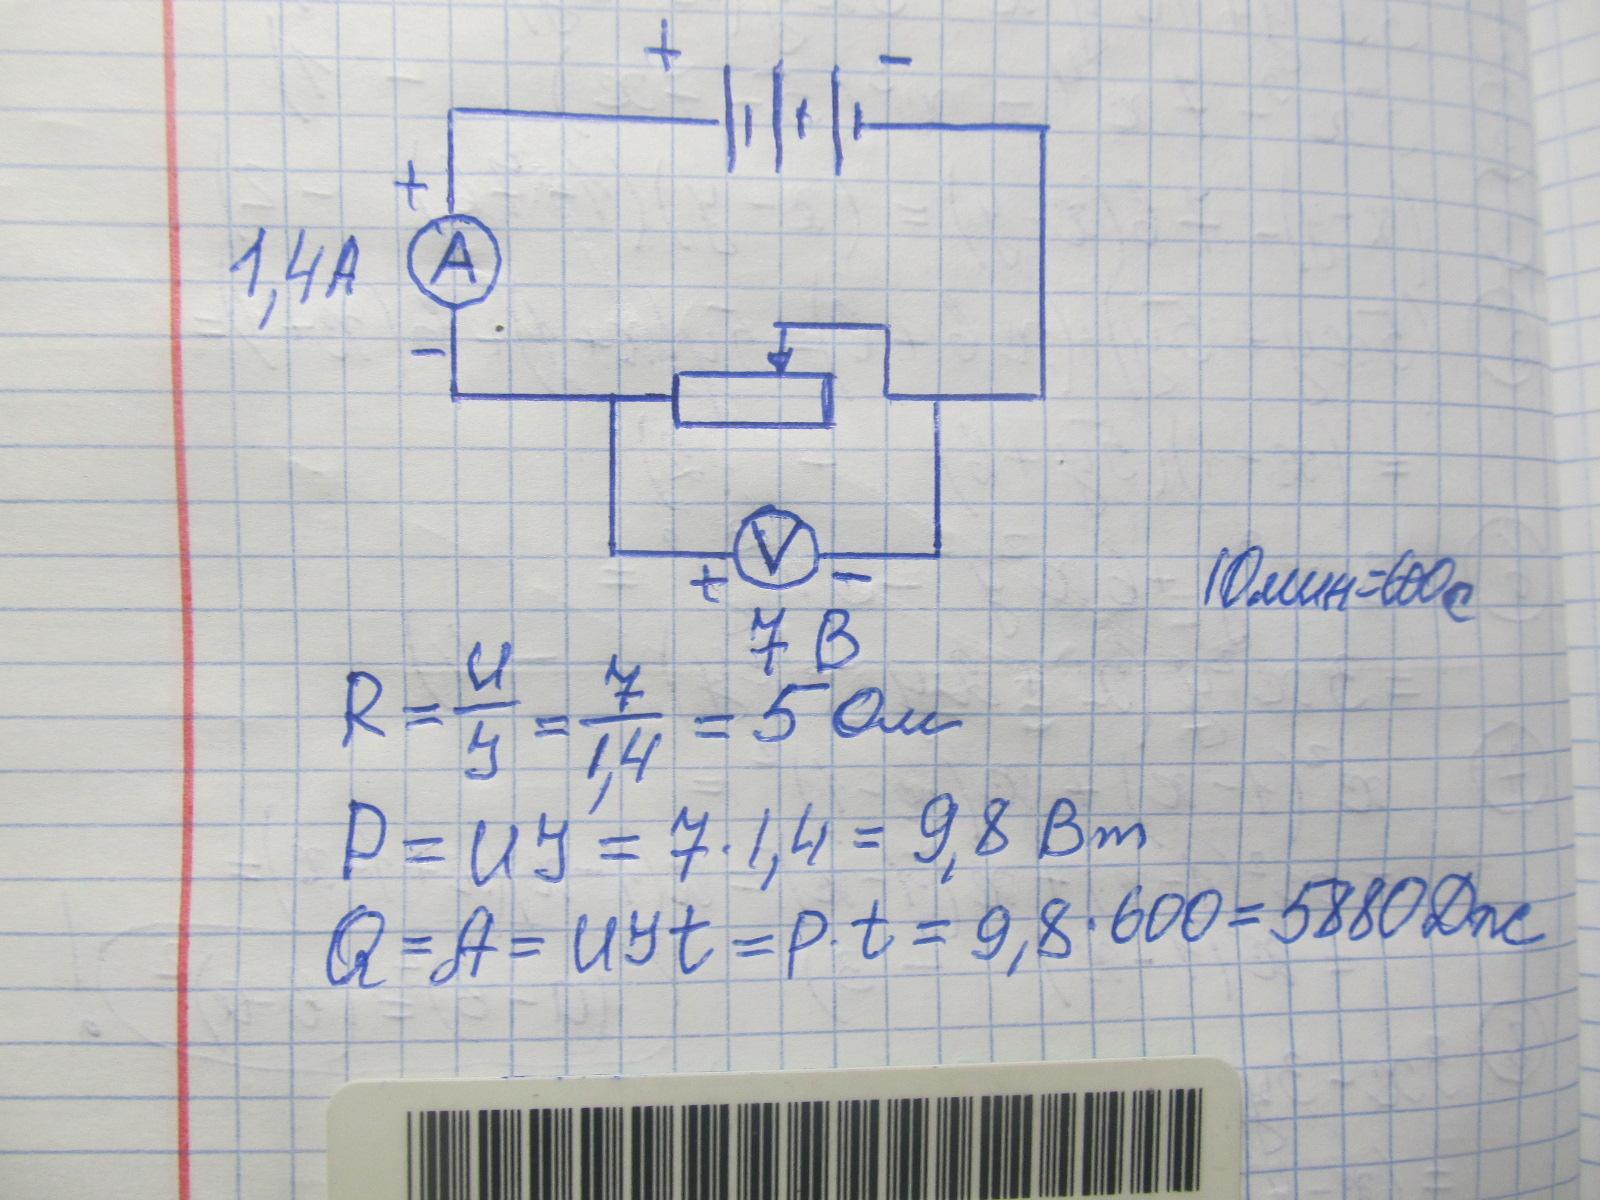 + -
+
1,4А A
-
V
+ -
10мин=600с
7 В
R = U/J = 7/1,4 = 5 Ом
P = UJ = 7·1,4 = 9,8 Вт
Q = A = UJt = P·t = 9,8·600 = 5880Дж